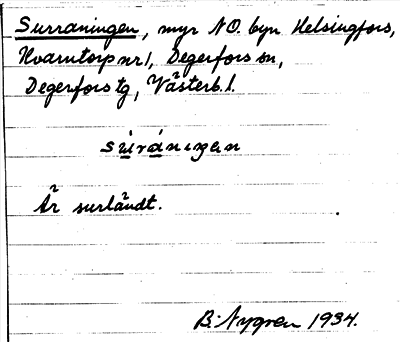 Surraningen, myr NO. byn Helsingfors,
Kvarntorp nr 1, Degerfors sn,
Degerfors tg, Västerb. l.
súrániŋen
Är surländt.
B. Nygren 1934.